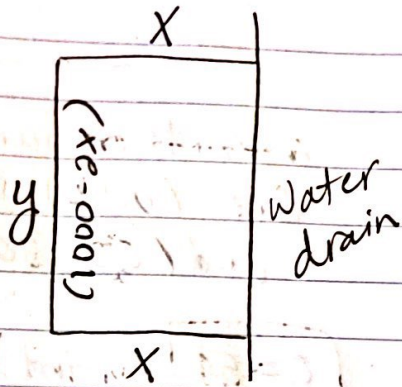 X
y
(1000-2x)
Water
drain
X